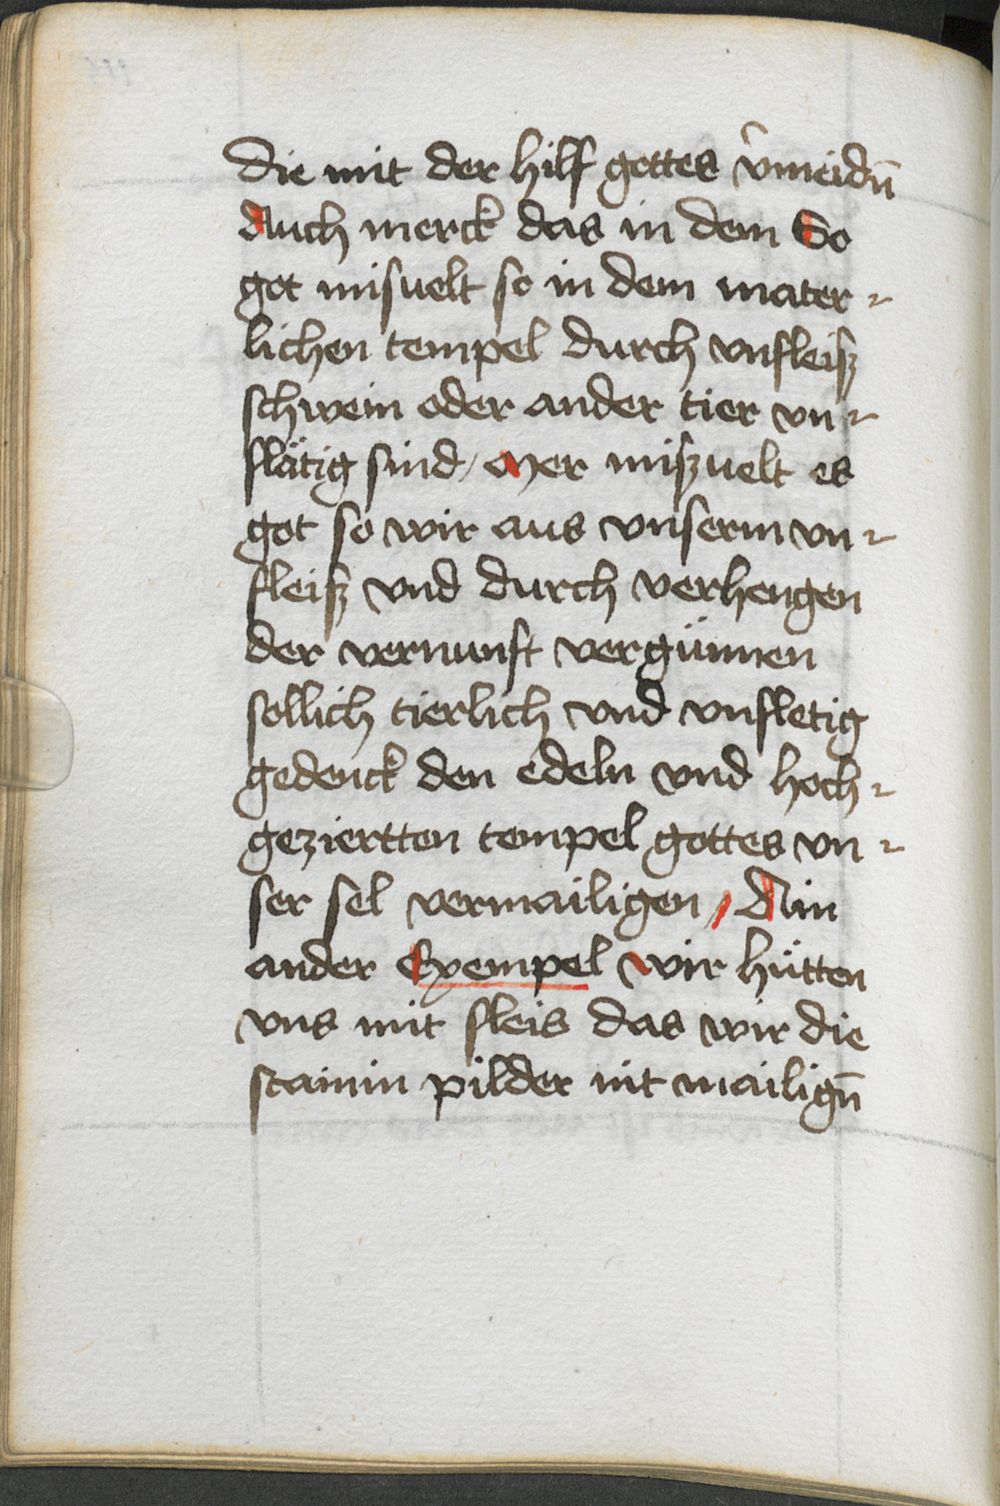 die mit der hilf gottes v̓meidn̄
Auch merck das in dem So
got misuelt so in dem mater⸗
lichen tempel durch vnfleisz
schwein oder ander tier vn⸗
flätig sind / Mer miszuelt es
got so wir aus vnserm vn⸗
fleisz vnd durch verhengen
der vernunft vergünnen
sollich tierlich vnd vnfletig
gedenck den edeln vnd hoch⸗
geziertten tempel gottes vn⸗
ser sel vermailigen / Ain
ander Exempel wir hütten
vns mit fleis das wir die
stainin pilder nit mailign̄